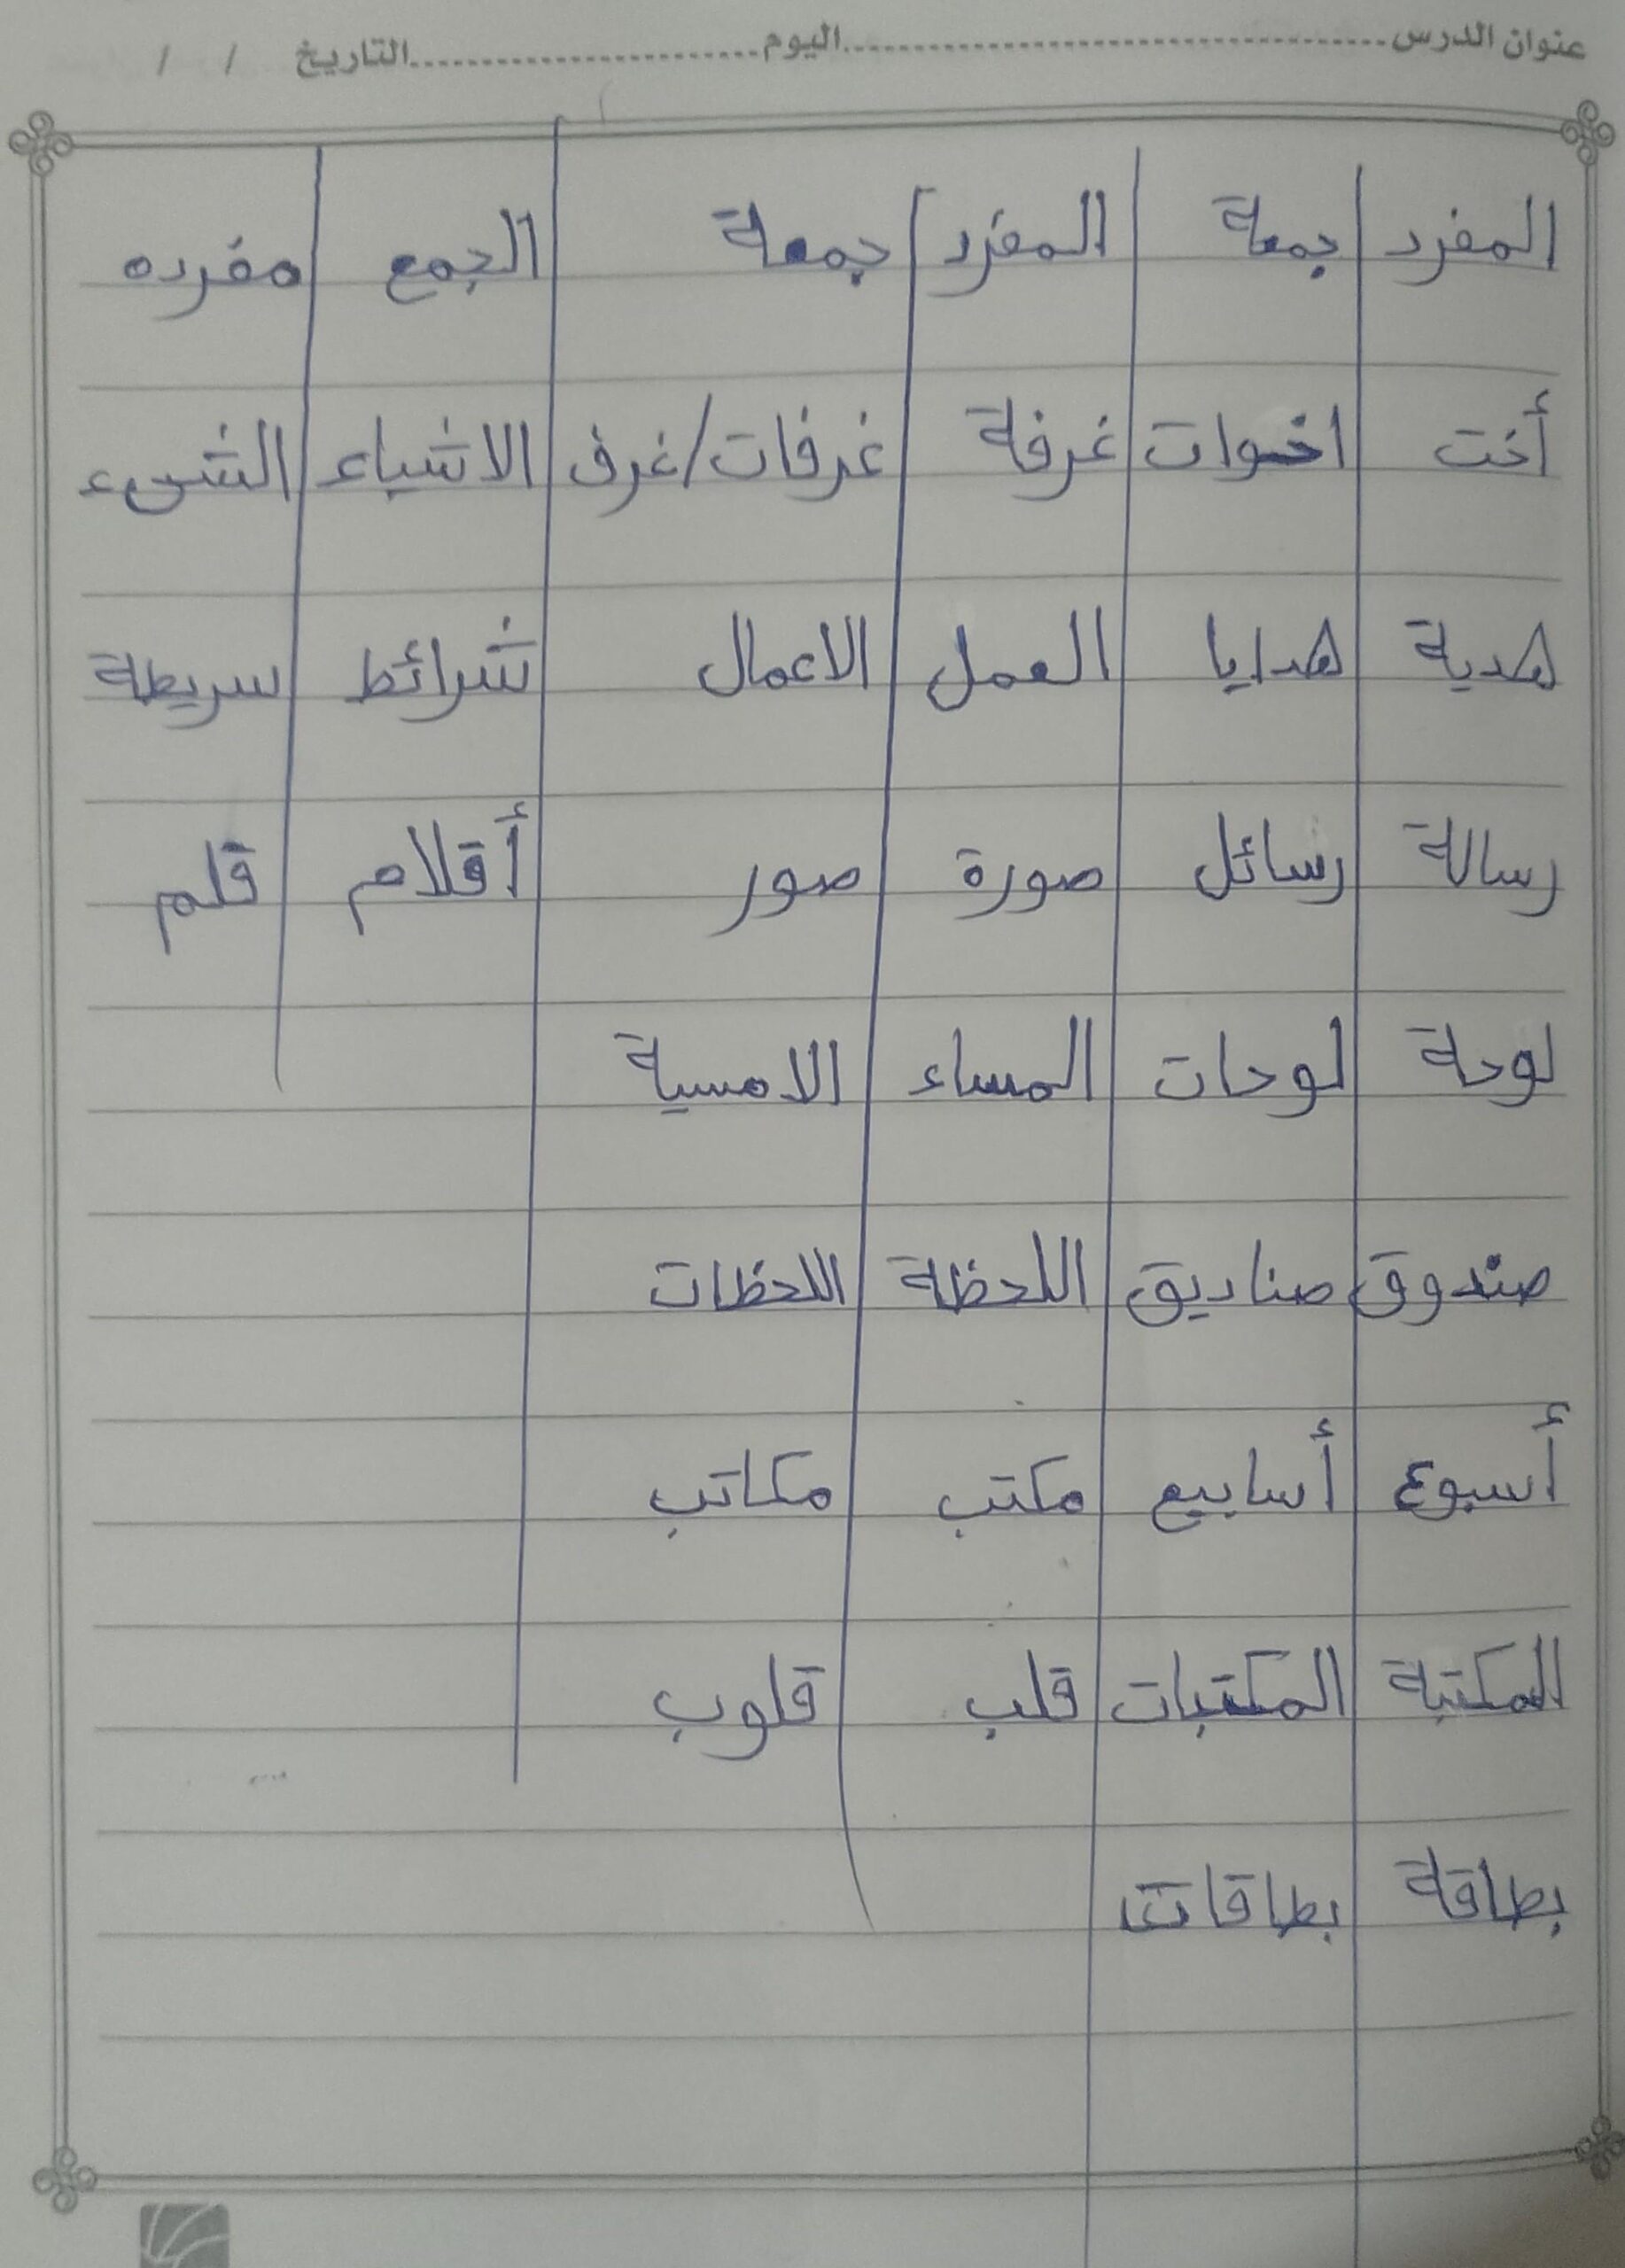 عنوان الدرس........................................اليوم..............................التاريخ / /
المفرد جمعة المفرد جمعة الجمع مفرده
أخت اخوات غرفة غرفات/غرف الاشياء الشيء
هدية هدايا العمل الاعمال شرائط سريطة
رسالة رسائل صورة صور أقلام قلم
لوحة لوحات المساء الامسية
صندوق صناديق اللحظة اللحظات
أسبوع أسابيع مكتب مكاتب
المكتبة المكتبات قلب قلوب
بطاقة بطاقات